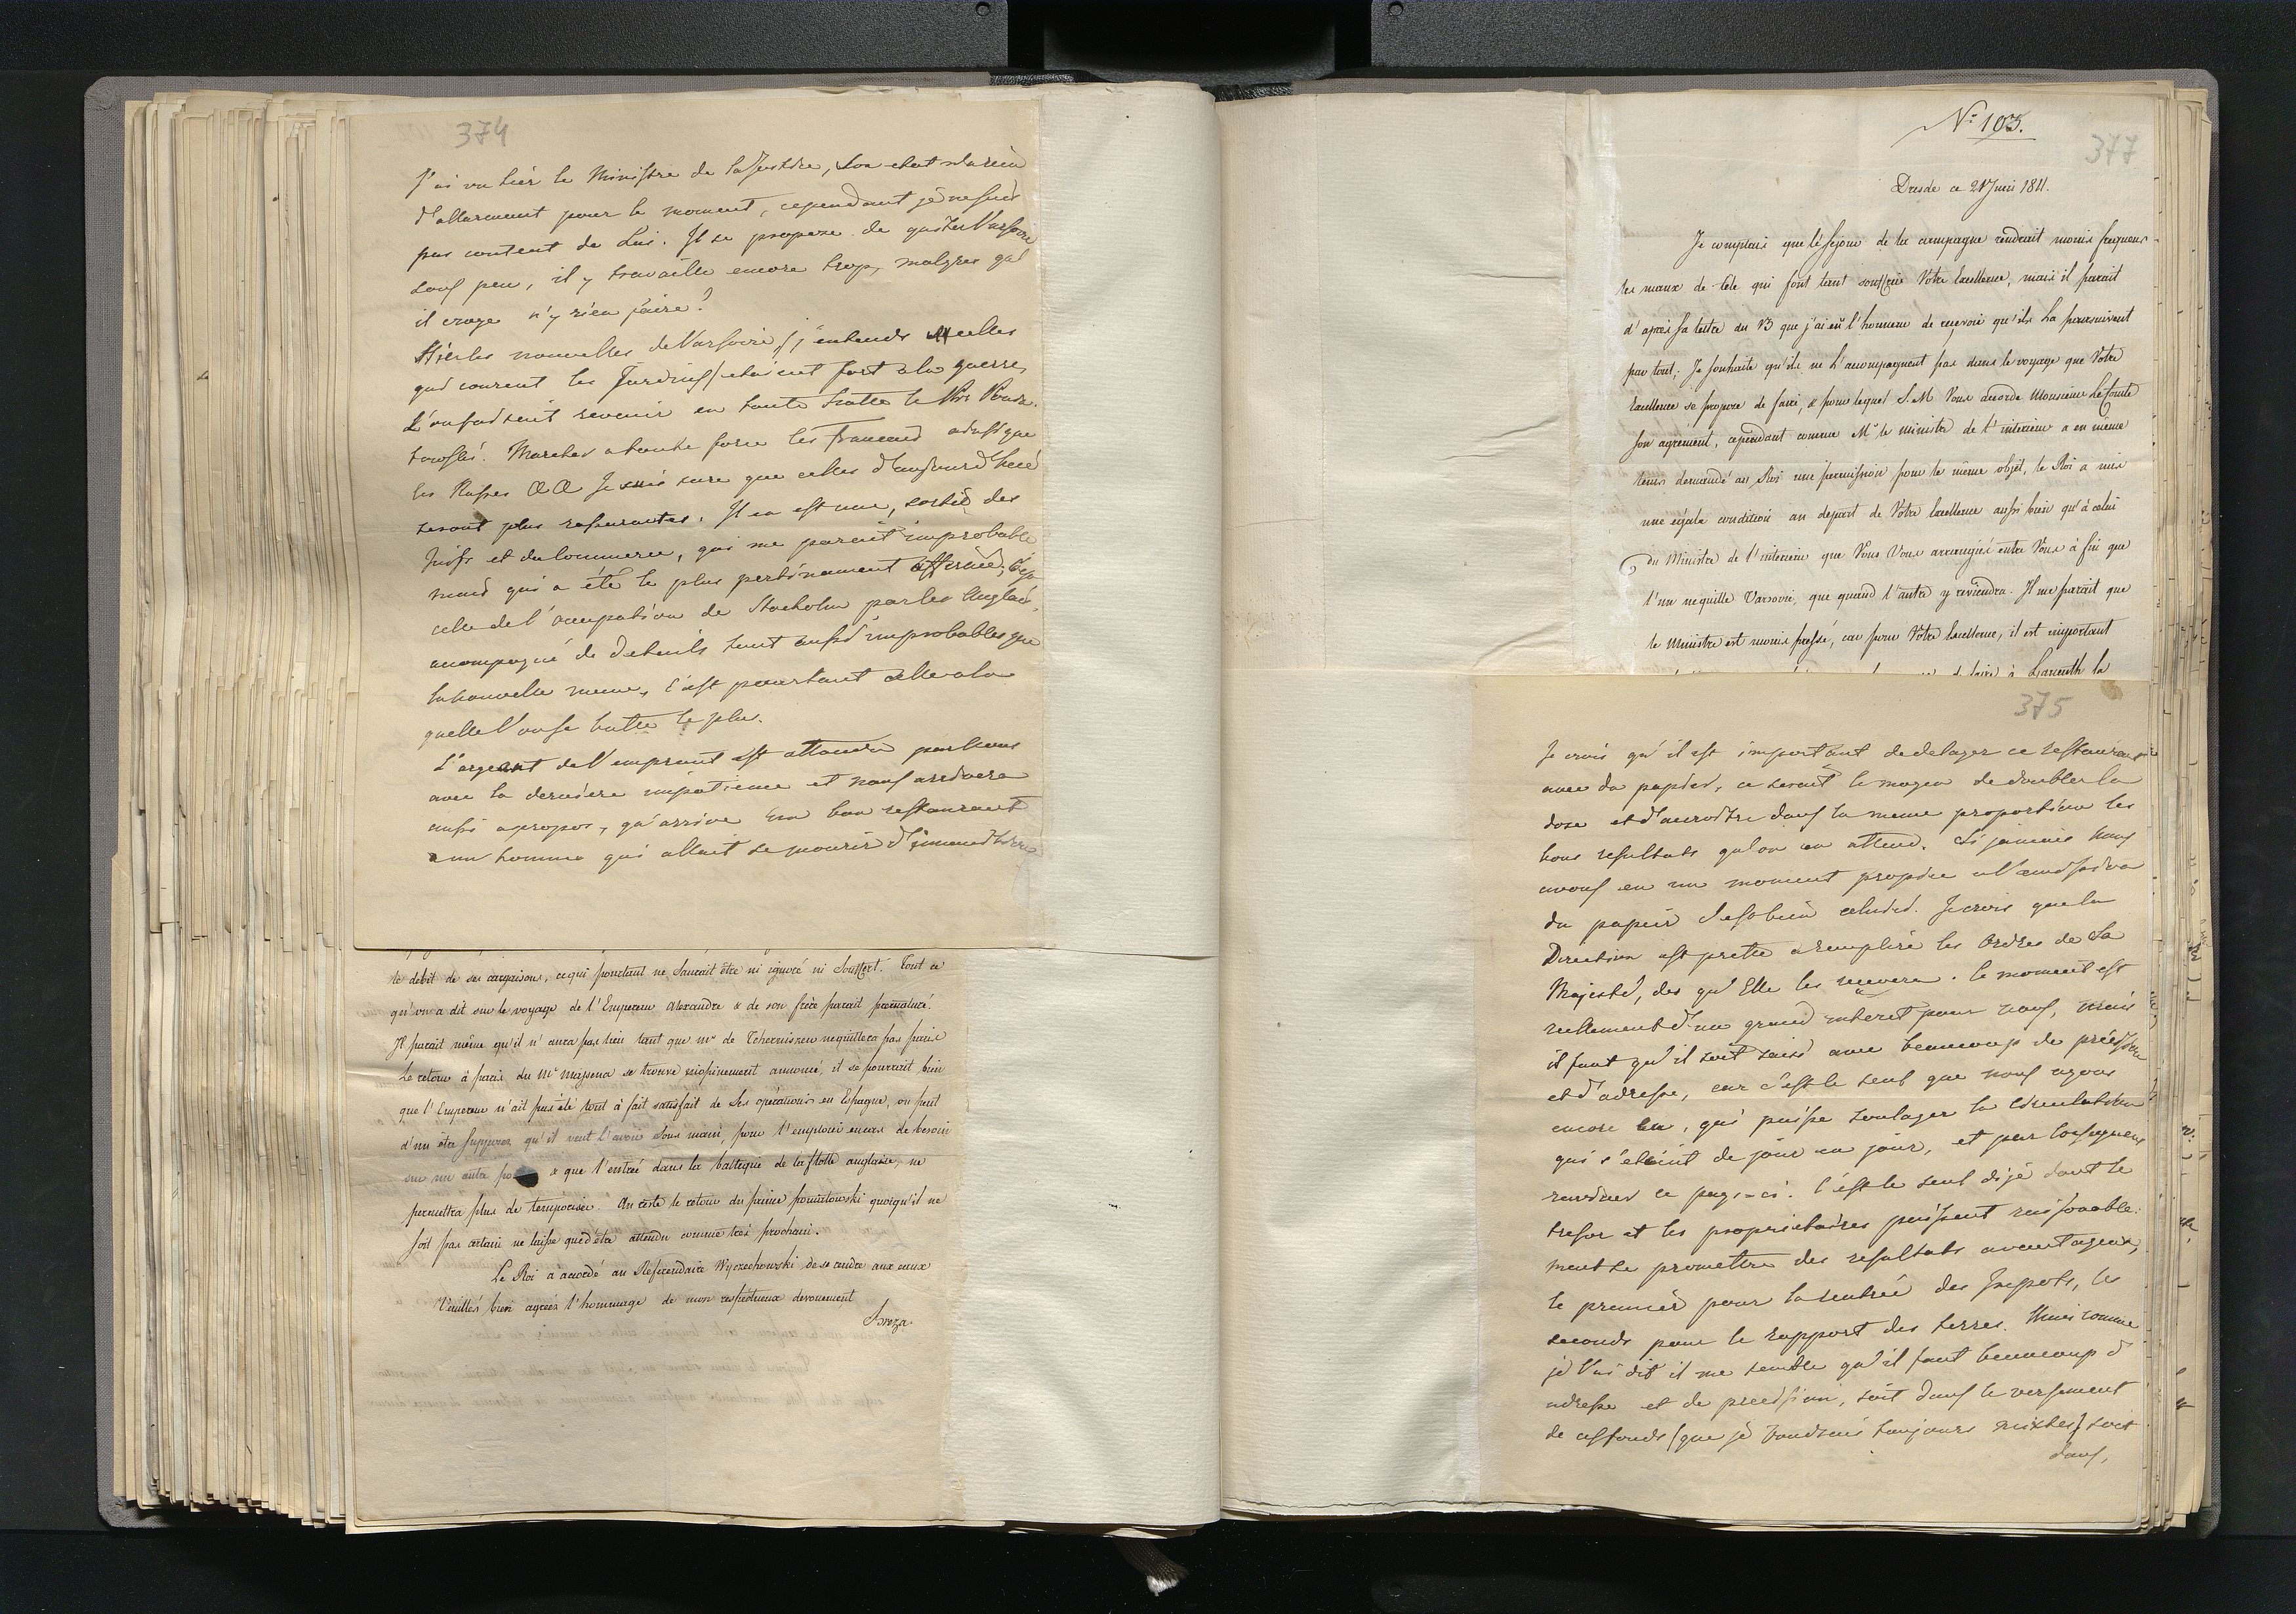 374
J'ai vu hiér le Ministre de la Justice, Son etat n'a rien
d'allarment pour le moment, cependant jé ne suis
pas content de Lui. Il se propose de quiter Varsovie
sous peu, il y travaille encore trop, malgres qu'
il croye n'y rién faire?
Hiér les nouvelles de Varsovie (j'entends celles
qui courent les Jardins) etaient fort a la guerre,
L'on faisait revenir en toute hatte le Pce Ponia-
towski. Marcher a toute force les francais ainsi que
les Russes &&. Je suis sure que celles d'aujourd'hui
seront plus rassurantes. Il en est une, sortié des
Juifs et du Commerce, qui me parait improbable
mais qui a été le plus pertinament affermié; C'est
celle de l'occupation de Stockolm par les Anglais,
acompagné de details tout aussi improbables que
la nouvelle meme, C'est pourtant celle a la
quelle l'on se hatte le plus.
L'argent de l'emprunt est attendu par Nous
avec la derniere impatience et nous arrivera
aussi apropos, qu'arrive un bon restaurant
a un homme qui allait se mourir d'
le debit de ses cargaisons, ce qui pourtant ne Saurait être ni ignoré ni Souffert. Tout ce
qu'on a dit sur le voyage de l'Empereur Alexandre & de son frère parait prematuré.
Il parait même qu'il n'aura pas lieu tant que Mr de Tchernichew ne quittera pas paris
Le retour à paris du Ml Massena se trouve inopinement annoncé, il se pourrait bien
que l'Empereur n'ait pas été tout à fait satisfait de Ses opérations en Espagne, on peut
d'un être Supposer qu'il veut L'avoir Sous main, pour l'emploier encas de besoin
sur un autre & que l'entreé dans la balteque de la flotte anglaise, ne
permettra plus de temporiser. Au reste le retour du prince poniatowski quoiqu'il ne
Soit pas certain ne laisse que d'être attendu comme tres prochain.
Le Roi a accordé au Réferendaire Wyczechowski de se rendre aux eaux
Veuillés bien agréer l'hommage de mon respectueux devouement
Breza.
No 103.
377
Dresde ce 21 Juin 1811.
Je comptais que lé Sejour de la campagne rendrait moins frequens
les maux de tête qui font tant souffrir Votre Excellence, mais il parait
d'après Sa lettre du 13 que j'ai eû l'honneur de recevoir qu'ils La poursuivent
par tout; Je Souhaite qu'ils ne L'accompagnent pas dans le voyage que Votre
Excellence se propose de faire, & pour lequel S. M. Vous accorde Monsieur Le Comte
Son agrement, cependant comme Mr le Ministre de l'interieur a en même
tems demandé au Roi une permission pour le même objet, le Roi a mis
une égale condition au depart de Votre Excellence aussi bien qu'à celui
du Ministre de l'interieur que Vous Vous arrangiés entre Vous à fin que
l'un ne quitte Varsovie, que quand l'autre y reviendra. Il me parait que
le Ministre est moins pressé, car pour Votre Excellence, il est important
la
375
Je crois qu'il est important de delayer ce restaurant
avec du papier, ce serait le moyen de doubler la
dose et d'accroitre dans la meme proportion les
bons resultats qu'on en attend. Si jamais Nous
avons eu un moment propice a l'emission
du papier c'est bien celui-ci. Je crois que la
Direction est prette a remplire les Ordres de Sa
Majesté, des qu'Elle les recevera. Ce moment est
reellement d'un grand interet pour nous, mais
il faut qu'il soit saisi avec beaucoup de précision
et d'adresse, car c'est le seul que nous ayons
encore eu, qui puisse soulager la Circulation
qui s'eteint de jour en jour, et par Consequent
ranimer ce pays-ci. C'est le seul dijé dont le
tresor et les proprietaires puissent raisonable-
ment se promettre des resultats avantageux,
le premier pour la rentrée des Impots, les
seconds pour le rapport des terres. Mais comme
jé l'ai dit il me semble qu'il faut beaucoup d'
adresse et de precision, soit dans le versement
de ces fonds (que jé voudrais toujours mixtes) soit
dans,